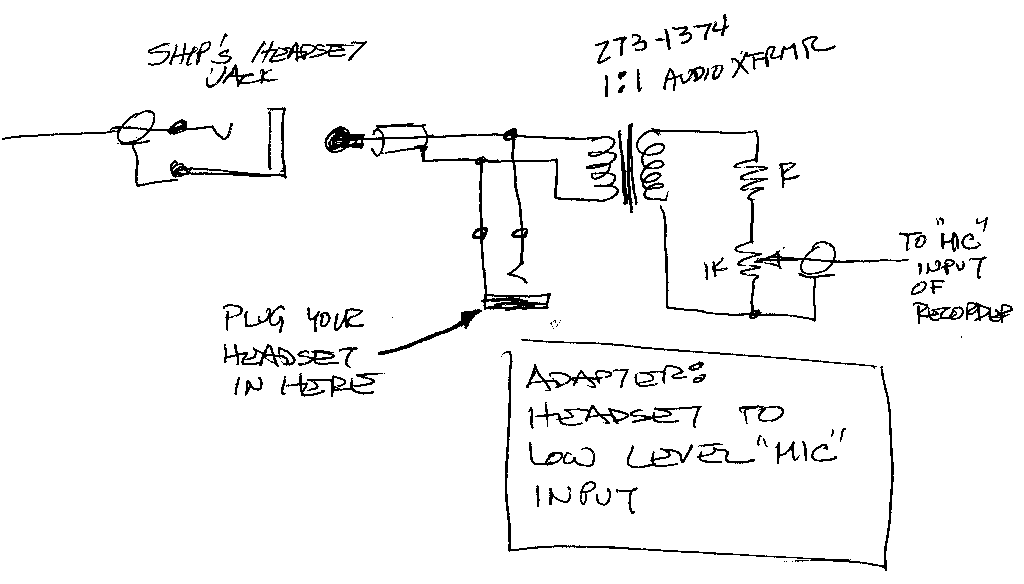 SHIP'S HEADSET
JACK
273-1374
1:1 AUDIO XFRMR
R
1K
TO "MIC"
INPUT
OF
RECORDER
PLUG YOUR
HEADSET
IN HERE
ADAPTER:
HEADSET TO
LOW LEVEL "MIC"
INPUT